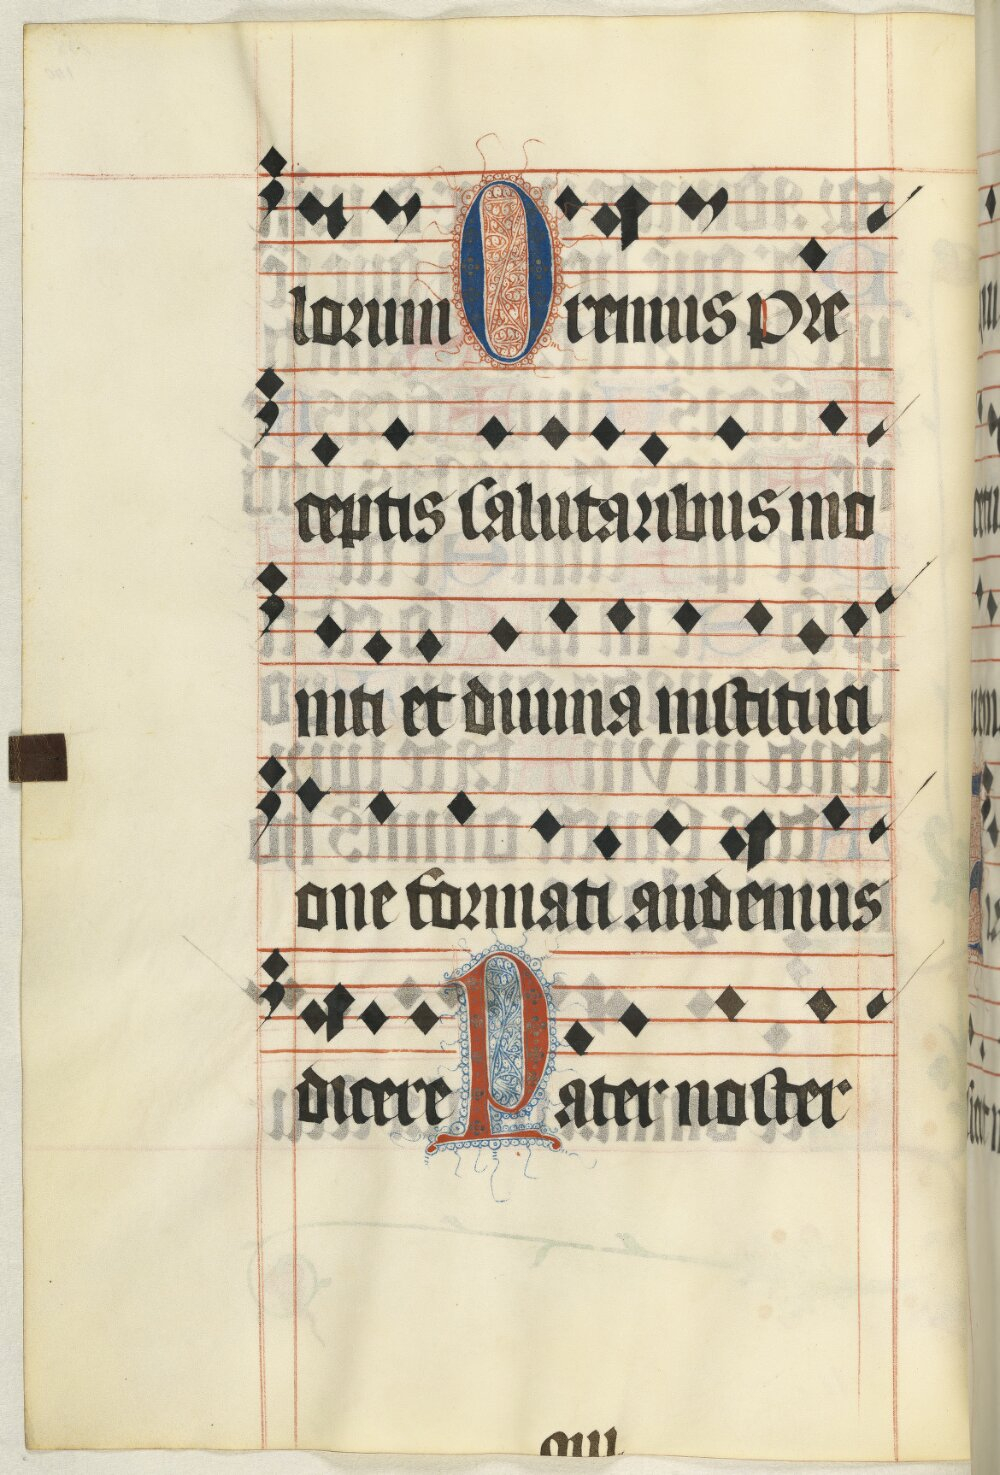 lorum Oremus Pre
ceptis salutaribus mo
niti et diuina instituti
one formati audemus
dicere Pater noster
qui